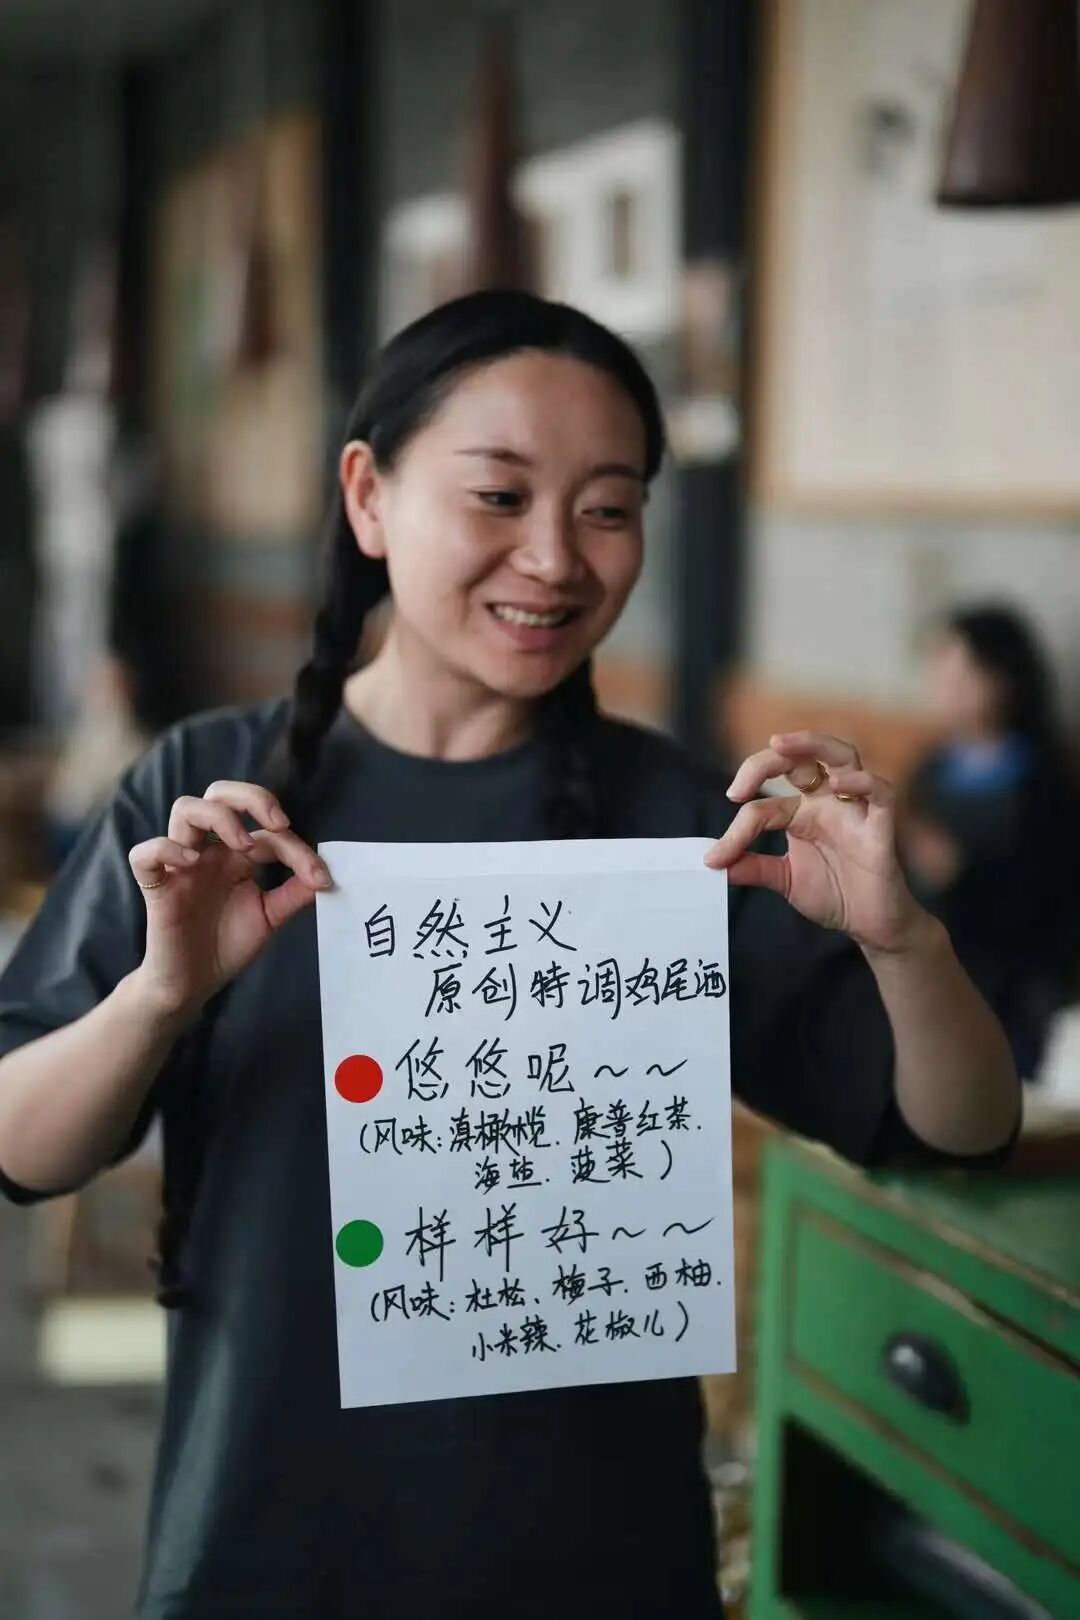 自然主义
原创特调鸡尾酒
悠悠呢~~
(风味:滇橄榄.康普红茶.
海盐.菠菜)
样样好~~
(风味:杜松、梅子.西柚.
小米辣.花椒儿)